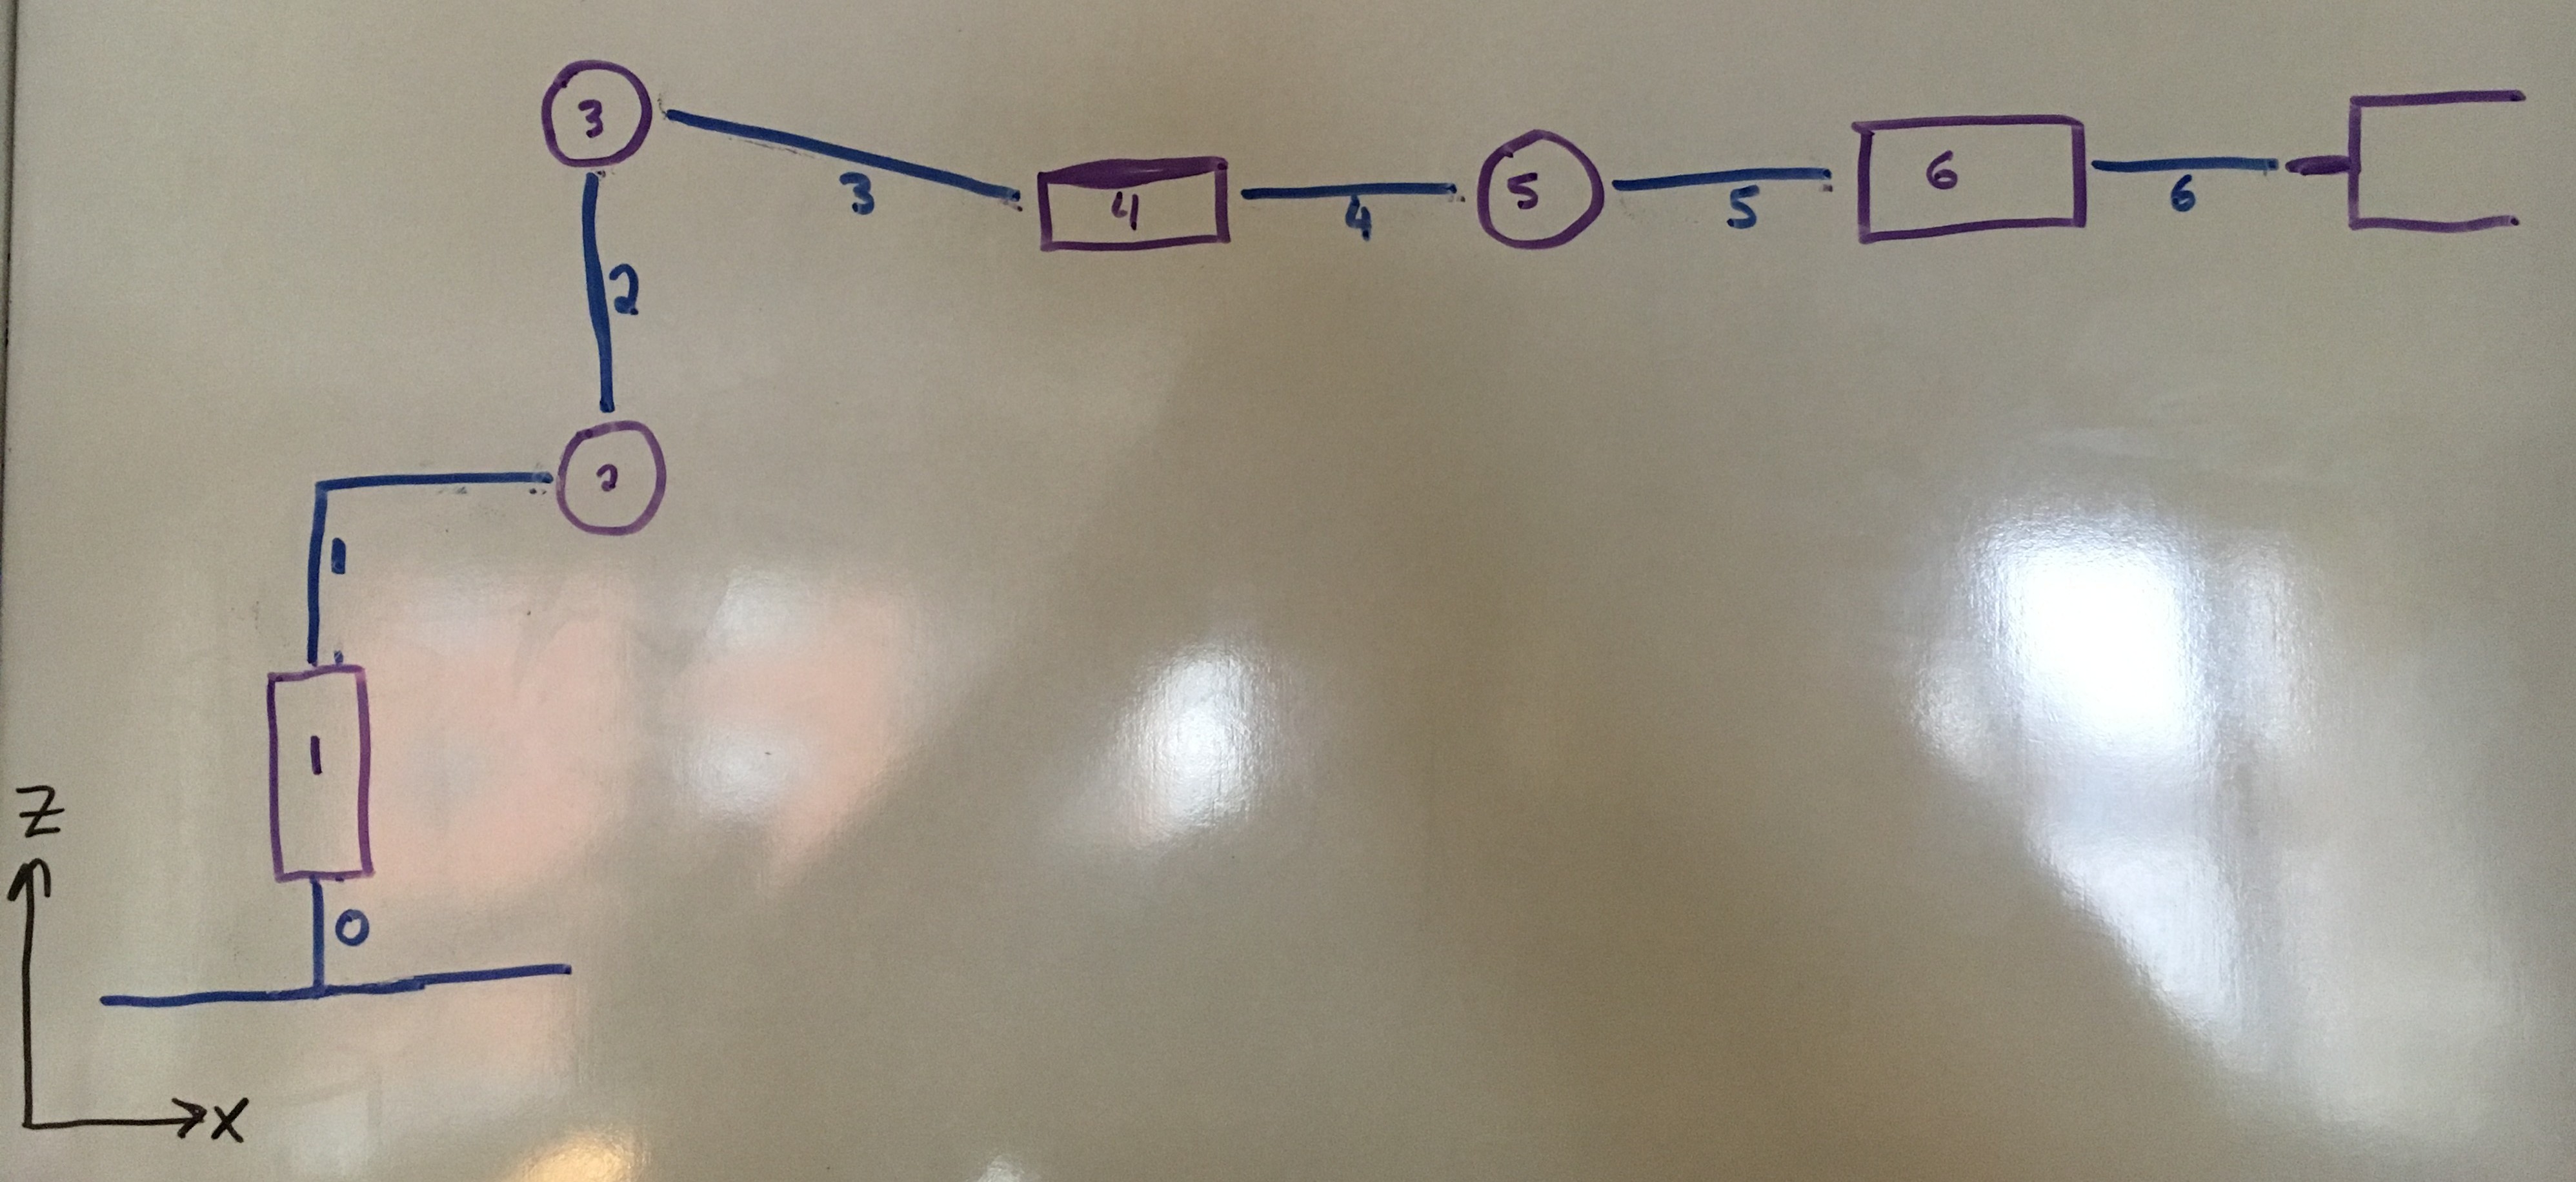 3
3
4
4
5
5
6
6
2
2
1
1
0
Z
X